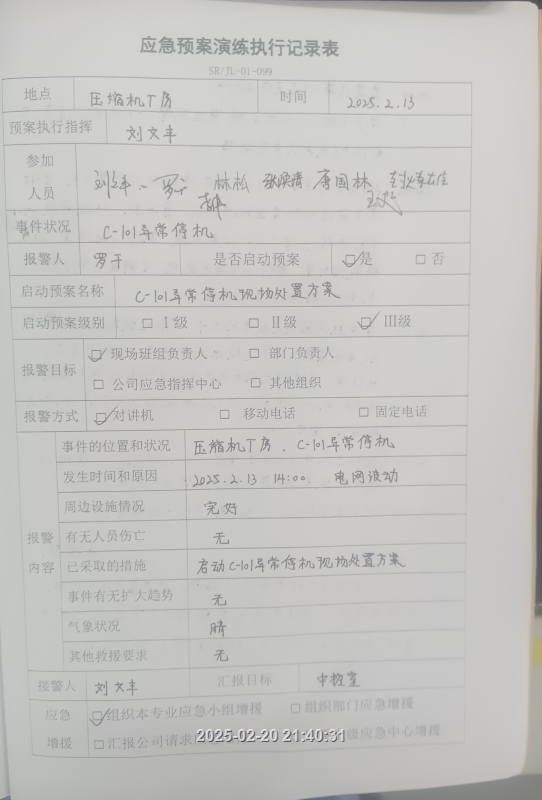 应急预案演练执行记录表
SR/JL-01-099
地点 压缩机厂房 时间 2025.2.13
预案执行指挥 刘文丰
参加人员 林松 唐国林
事件状况 C-101异常停机
报警人 罗干 是否启动预案 ☑是 □否
启动预案名称 C-101异常停机现场处置方案
启动预案级别 □Ⅰ级 □Ⅱ级 ☑Ⅲ级
报警目标 ☑现场班组负责人 □部门负责人
□公司应急指挥中心 □其他组织
报警方式 ☑对讲机 □移动电话 □固定电话
报警内容
事件的位置和状况 压缩机厂房、C-101异常停机
发生时间和原因 2025.2.13 14:00 电网波动
周边设施情况 完好
有无人员伤亡 无
已采取的措施 启动C-101异常停机现场处置方案
事件有无扩大趋势 无
气象状况 晴
其他救援要求 无
接警人 刘文丰 汇报目标 中控室
应急增援 ☑组织本专业应急小组增援 □组织部门应急增援
□汇报公司请求 级应急中心增援
2025-02-20 21:40:31